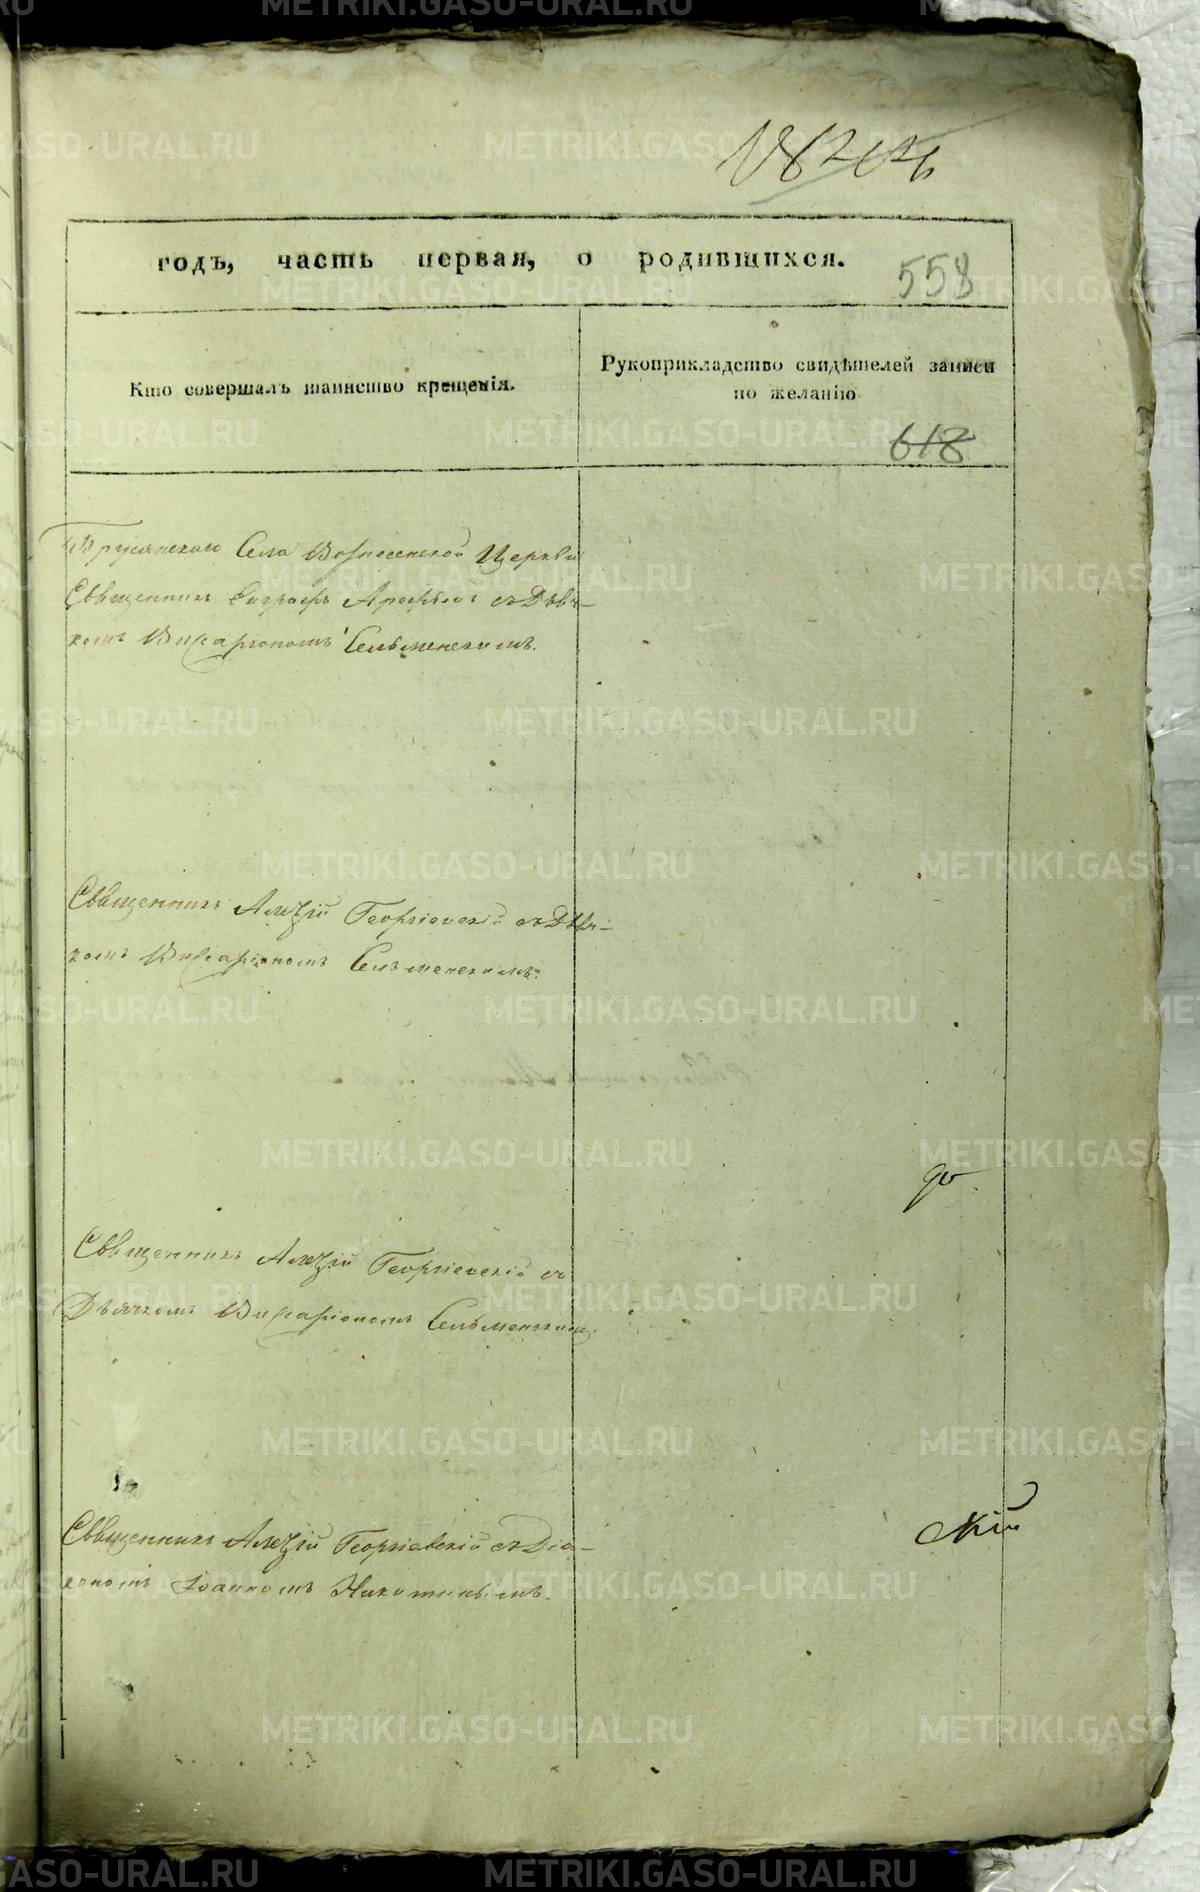 годъ, часть первая, о родившихся.
558
Кто совершалъ таинство крещенія.
Рукоприкладство свидѣтелей записи
по желанію
618
Бруснянскаго Села Вознесенской Церкви
Священникъ Евграфъ Арефьевъ съ Дьяч-
комъ Висаріономъ Сельменскимъ.
Священникъ Алексій Георгіевскій съ Дьяч-
комъ Висаріономъ Сельменскимъ.
Священникъ Алексій Георгіевскій съ
Дьячкомъ Висаріономъ Сельменскимъ.
Священникъ Алексій Георгіевскій съ Діа-
кономъ Іоанномъ Никитинымъ.
METRIKI.GASO-URAL.RU